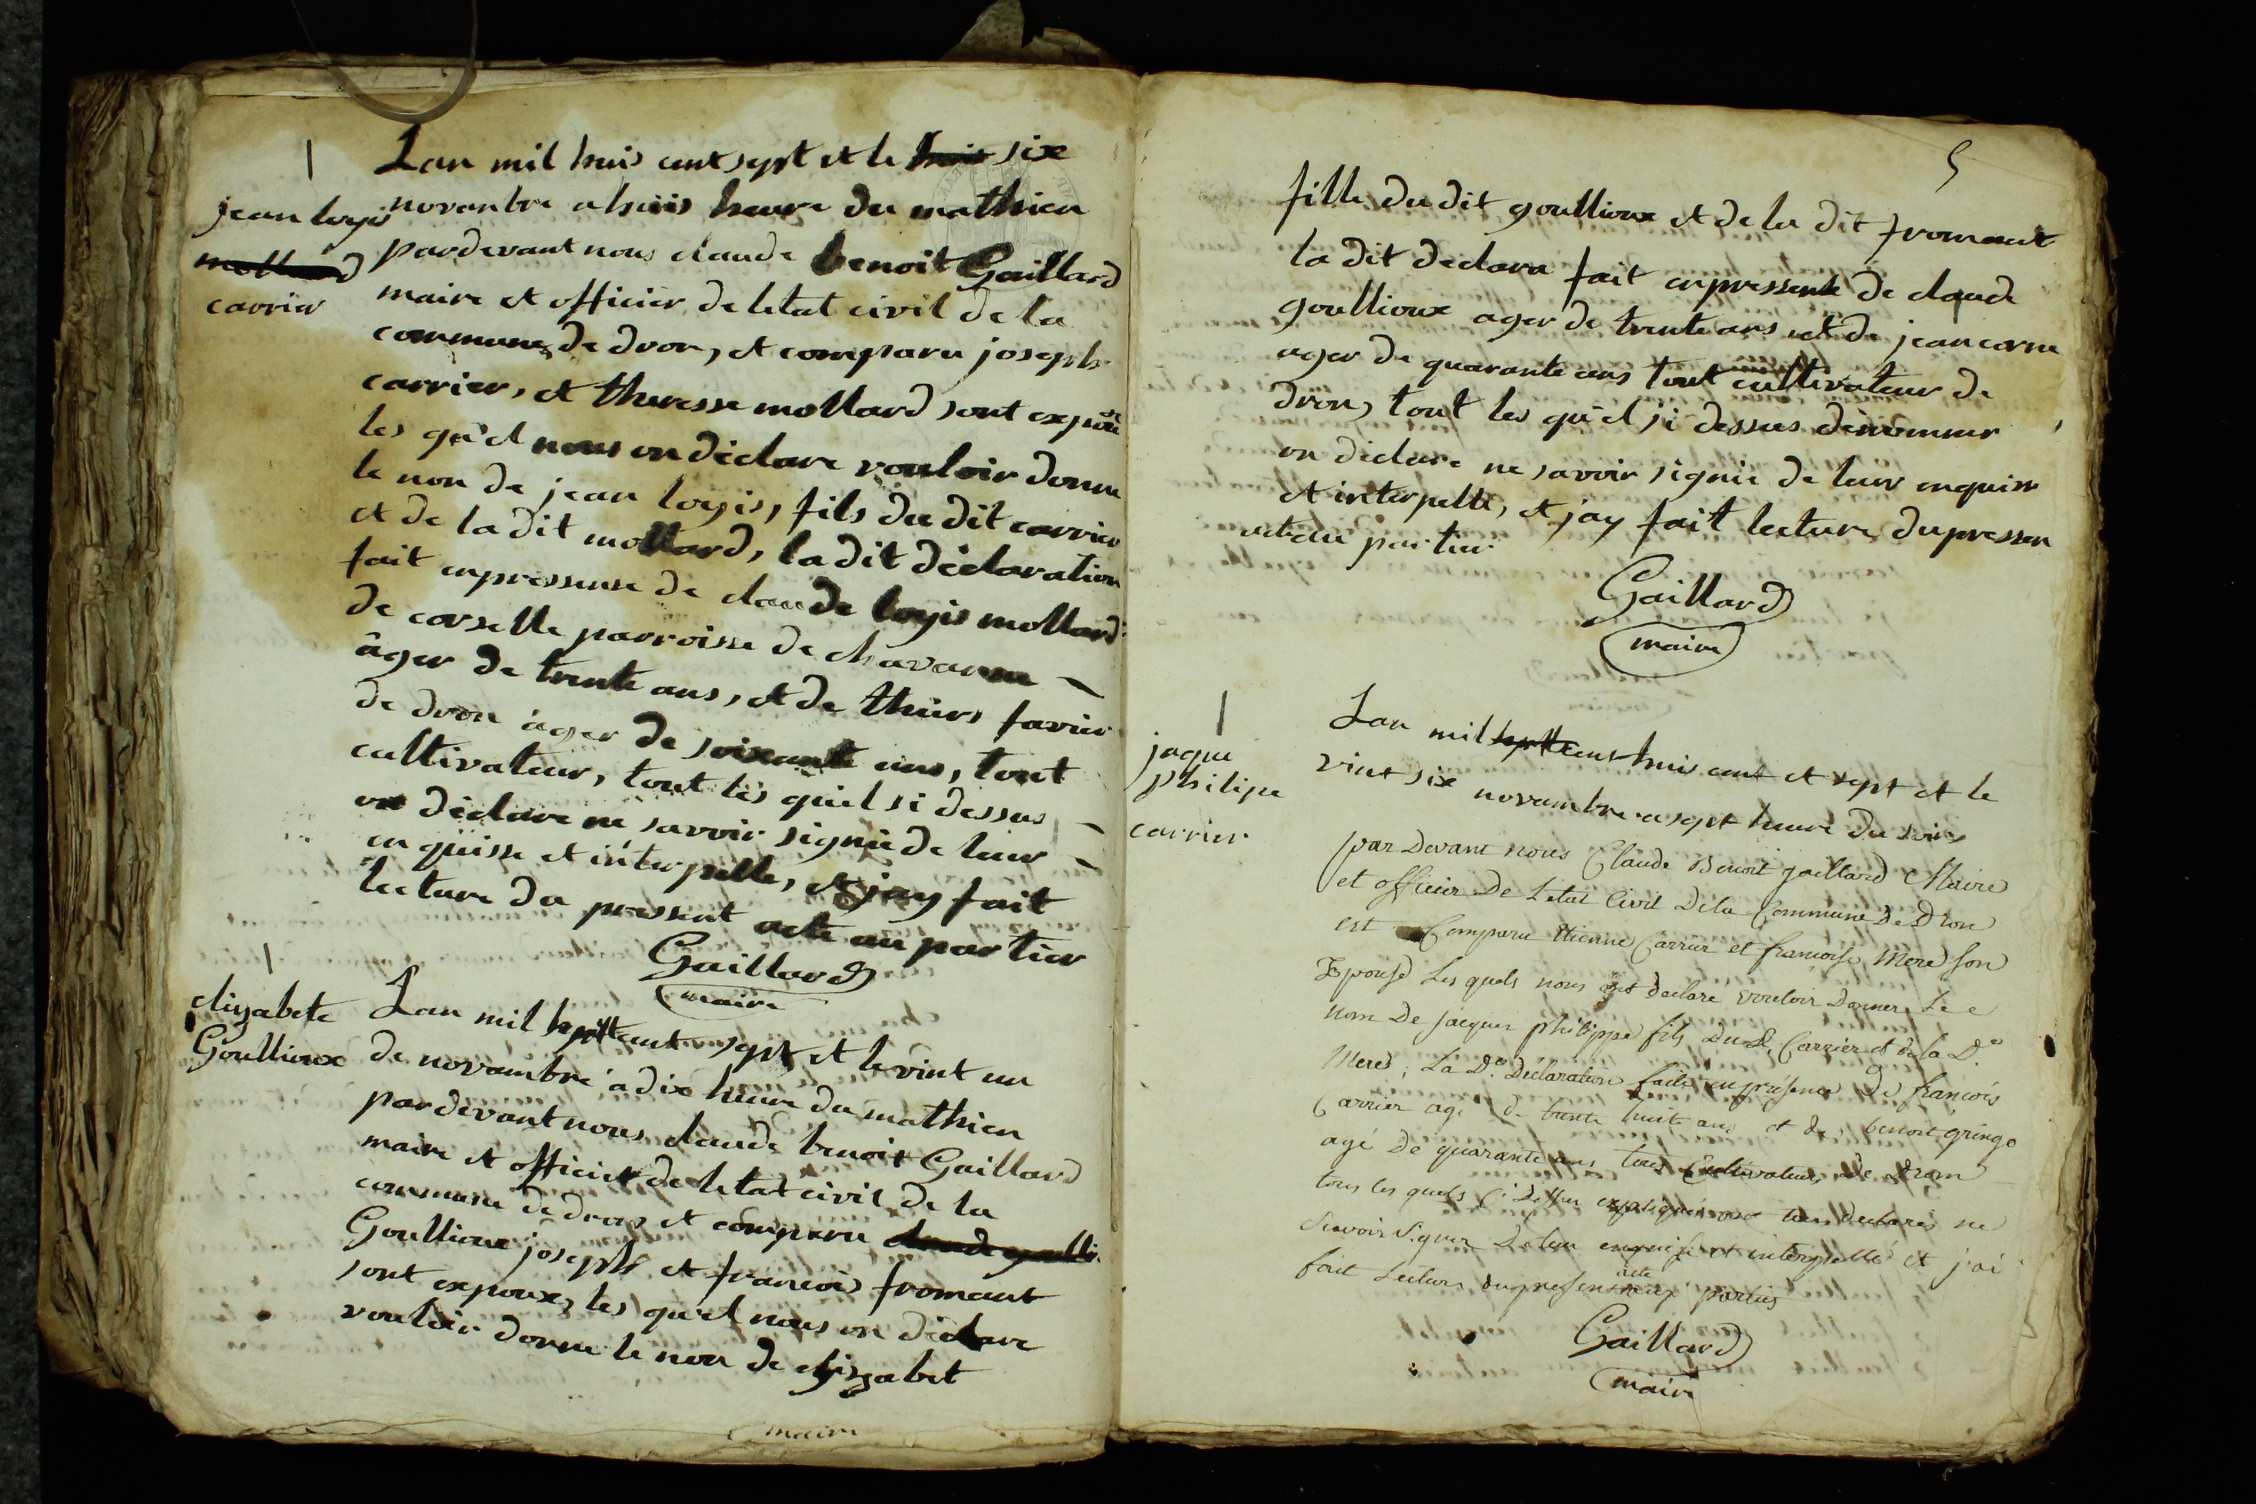 Lan mil huis cent sept et le huis six
novenbre a huis heure du mathien
jean loyis
mollard
carrier
pardevant nous claude benoit Gaillard
maire et officier de letat civil de la
commune de dron, et comparu joseph
carrier, et theresse mollard sont expouse
les qu'el nous on déclare vouloir donne
le non de jean loyis, fils du dit carrier
et de la dit mollard, la dit déclaration
fait enpressense de claude loyis mollard
de corselle parroisse de chavanne
âger de trente ans, et de favier
de dron âger de soixante ans, tout
cultivateur, tout les quel si dessus
on déclare ne savoir signié de leur
enquisse et interpelle, et jay fait
lecture du pressent acte au partier
Gaillard
maire
elizabete
Goullioux
Lan mil huit cent sept et le vint un
de novambre a dix heure du mathien
pardevant nous claude benoit Gaillard
maire et officier de letat civil de la
commune de dron et comparu claude goulli
Goullioux joseph et francois fromant
sont expoux, les qu'el nous on déclare
vouloir donne le non de elizabet
maire
5
fille du dit goullioux et de la dit fromant
la dit declara fait enpressente de claude
goullioux ager de trente ans et de jean carru
ager de quarante ans tout cultivateur de
dron, tout les qu'el si dessus dénommer
on déclare ne savoir signié de leur enquise
et interpelle, et jay fait lecture du pressen
acte au partier
Gaillard
maire
jaque
philipe
carrier
Lan mil sept cent huis cent et sept et le
vint six novambre a sept heure du soir
par Devant nous Claude Benoit gaillard Maire
et officier De Letat Civil Dela Commune De Dron
est Comparu Etienne Carrier et francoise Mere son
Epouse Les quels nous ont declaré vouloir Donner Le
nom De jacque philippe fils Du d. Carrier et dela De.
Mere, La De. Déclaration faite enprésence De francois
Carrier agé de trente huit ans et de benoit gringo
agé De quarante ans tous Cultivateurs De drom
tous les quels Ci Dessus expliqués ont declarés ne
Scavoir Signer Deleur enquise et interpellé et j'ai
fait Lecture du present acte aux parties
Gaillard
maire